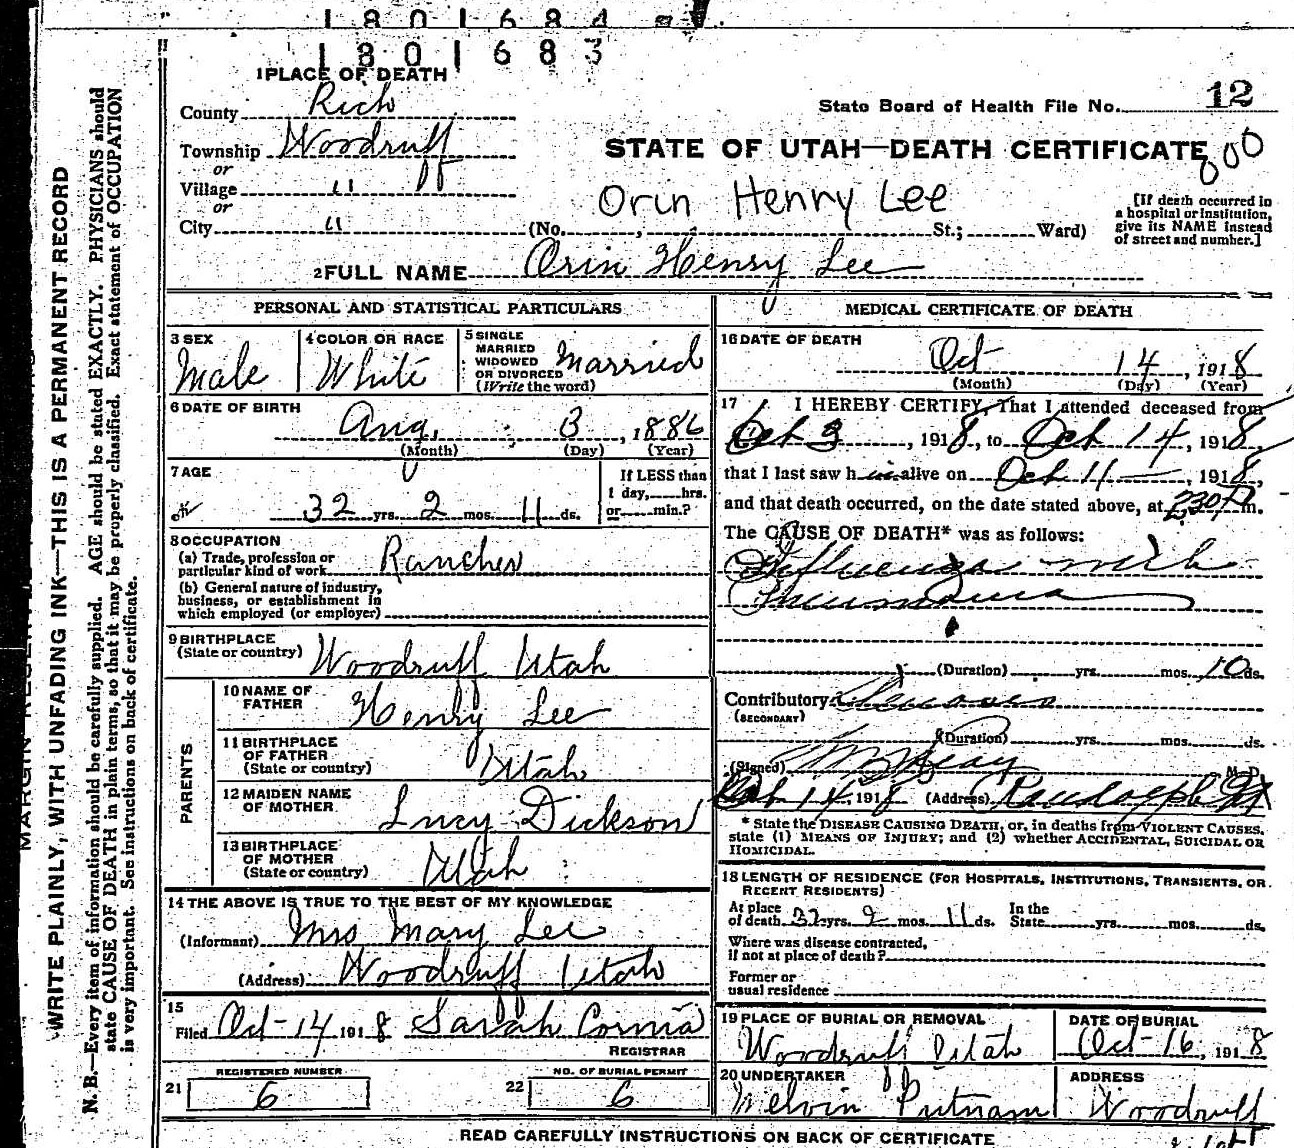 1801684
1801683
1 PLACE OF DEATH
County Rich
State Board of Health File No. 12
Township Woodruff
STATE OF UTAH—DEATH CERTIFICATE
000
or
Village "
or
City "
Orin Henry Lee
(No. , St.; Ward)
[If death occurred in
a hospital or institution,
give its NAME instead
of street and number.]
2 FULL NAME Orin Henry Lee
PERSONAL AND STATISTICAL PARTICULARS
3 SEX
Male
4 COLOR OR RACE
White
5 SINGLE
MARRIED
WIDOWED
OR DIVORCED
(Write the word)
Married
6 DATE OF BIRTH
Aug. 3, 1886
(Month) (Day) (Year)
7 AGE
32 yrs. 2 mos. 11 ds.
If LESS than
1 day, hrs.
or min.?
8 OCCUPATION
(a) Trade, profession or
particular kind of work Rancher
(b) General nature of industry,
business, or establishment in
which employed (or employer)
9 BIRTHPLACE
(State or country) Woodruff Utah
PARENTS
10 NAME OF
FATHER Henry Lee
11 BIRTHPLACE
OF FATHER
(State or country) Utah
12 MAIDEN NAME
OF MOTHER Lucy Dickson
13 BIRTHPLACE
OF MOTHER
(State or country) Utah
14 THE ABOVE IS TRUE TO THE BEST OF MY KNOWLEDGE
(Informant) Mrs Mary Lee
(Address) Woodruff Utah
15
Filed Oct-14 1918 Sarah Cornia
REGISTRAR
21 REGISTERED NUMBER
6
22 NO. OF BURIAL PERMIT
6
MEDICAL CERTIFICATE OF DEATH
16 DATE OF DEATH
Oct 14, 1918
(Month) (Day) (Year)
17 I HEREBY CERTIFY, That I attended deceased from
Oct 3, 1918, to Oct 14, 1918,
that I last saw him alive on Oct 11, 1918,
and that death occurred, on the date stated above, at 230 P m.
The CAUSE OF DEATH* was as follows:
Influenza with
Pneumonia
(Duration) yrs. mos. 10 ds.
Contributory
(SECONDARY)
(Duration) yrs. mos. ds.
(Signed) M.D.
Oct 14, 1918 (Address) Randolph Ut
* State the DISEASE CAUSING DEATH, or, in deaths from VIOLENT CAUSES,
state (1) MEANS OF INJURY; and (2) whether ACCIDENTAL, SUICIDAL OR
HOMICIDAL.
18 LENGTH OF RESIDENCE (FOR HOSPITALS, INSTITUTIONS, TRANSIENTS, OR
RECENT RESIDENTS)
At place
of death 32 yrs. 2 mos. 11 ds.
In the
State yrs. mos. ds.
Where was disease contracted,
if not at place of death?
Former or
usual residence
19 PLACE OF BURIAL OR REMOVAL
Woodruff Utah
DATE OF BURIAL
Oct-16, 1918
20 UNDERTAKER
Melvin Putnam
ADDRESS
Woodruff
READ CAREFULLY INSTRUCTIONS ON BACK OF CERTIFICATE
WRITE PLAINLY, WITH UNFADING INK—THIS IS A PERMANENT RECORD
N. B.—Every item of information should be carefully supplied. AGE should be stated EXACTLY. PHYSICIANS should
state CAUSE OF DEATH in plain terms, so that it may be properly classified. Exact statement of OCCUPATION
is very important. See instructions on back of certificate.